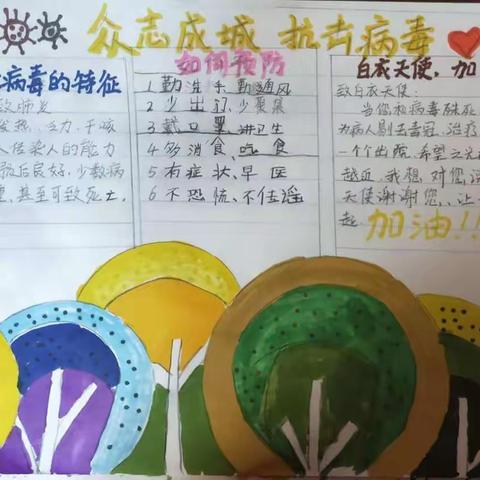 众志成城 抗击病毒
病毒的特征
致肺炎
发热、乏力、干咳
人传染人的能力
预后良好,少数病
重,甚至可致死亡。
如何预防
1 勤洗手,勤通风
2 少出门,少聚集
3 戴口罩,讲卫生
4 多消食,吃食
5 有症状,早医
6 不恐慌,不传谣
白衣天使,加
致白衣天使:
当您和病毒殊死
为病人剔去毒冠,治疗
一个个出院,希望之光
越近,我想,对您说
天使谢谢您,,让
起加油!!!